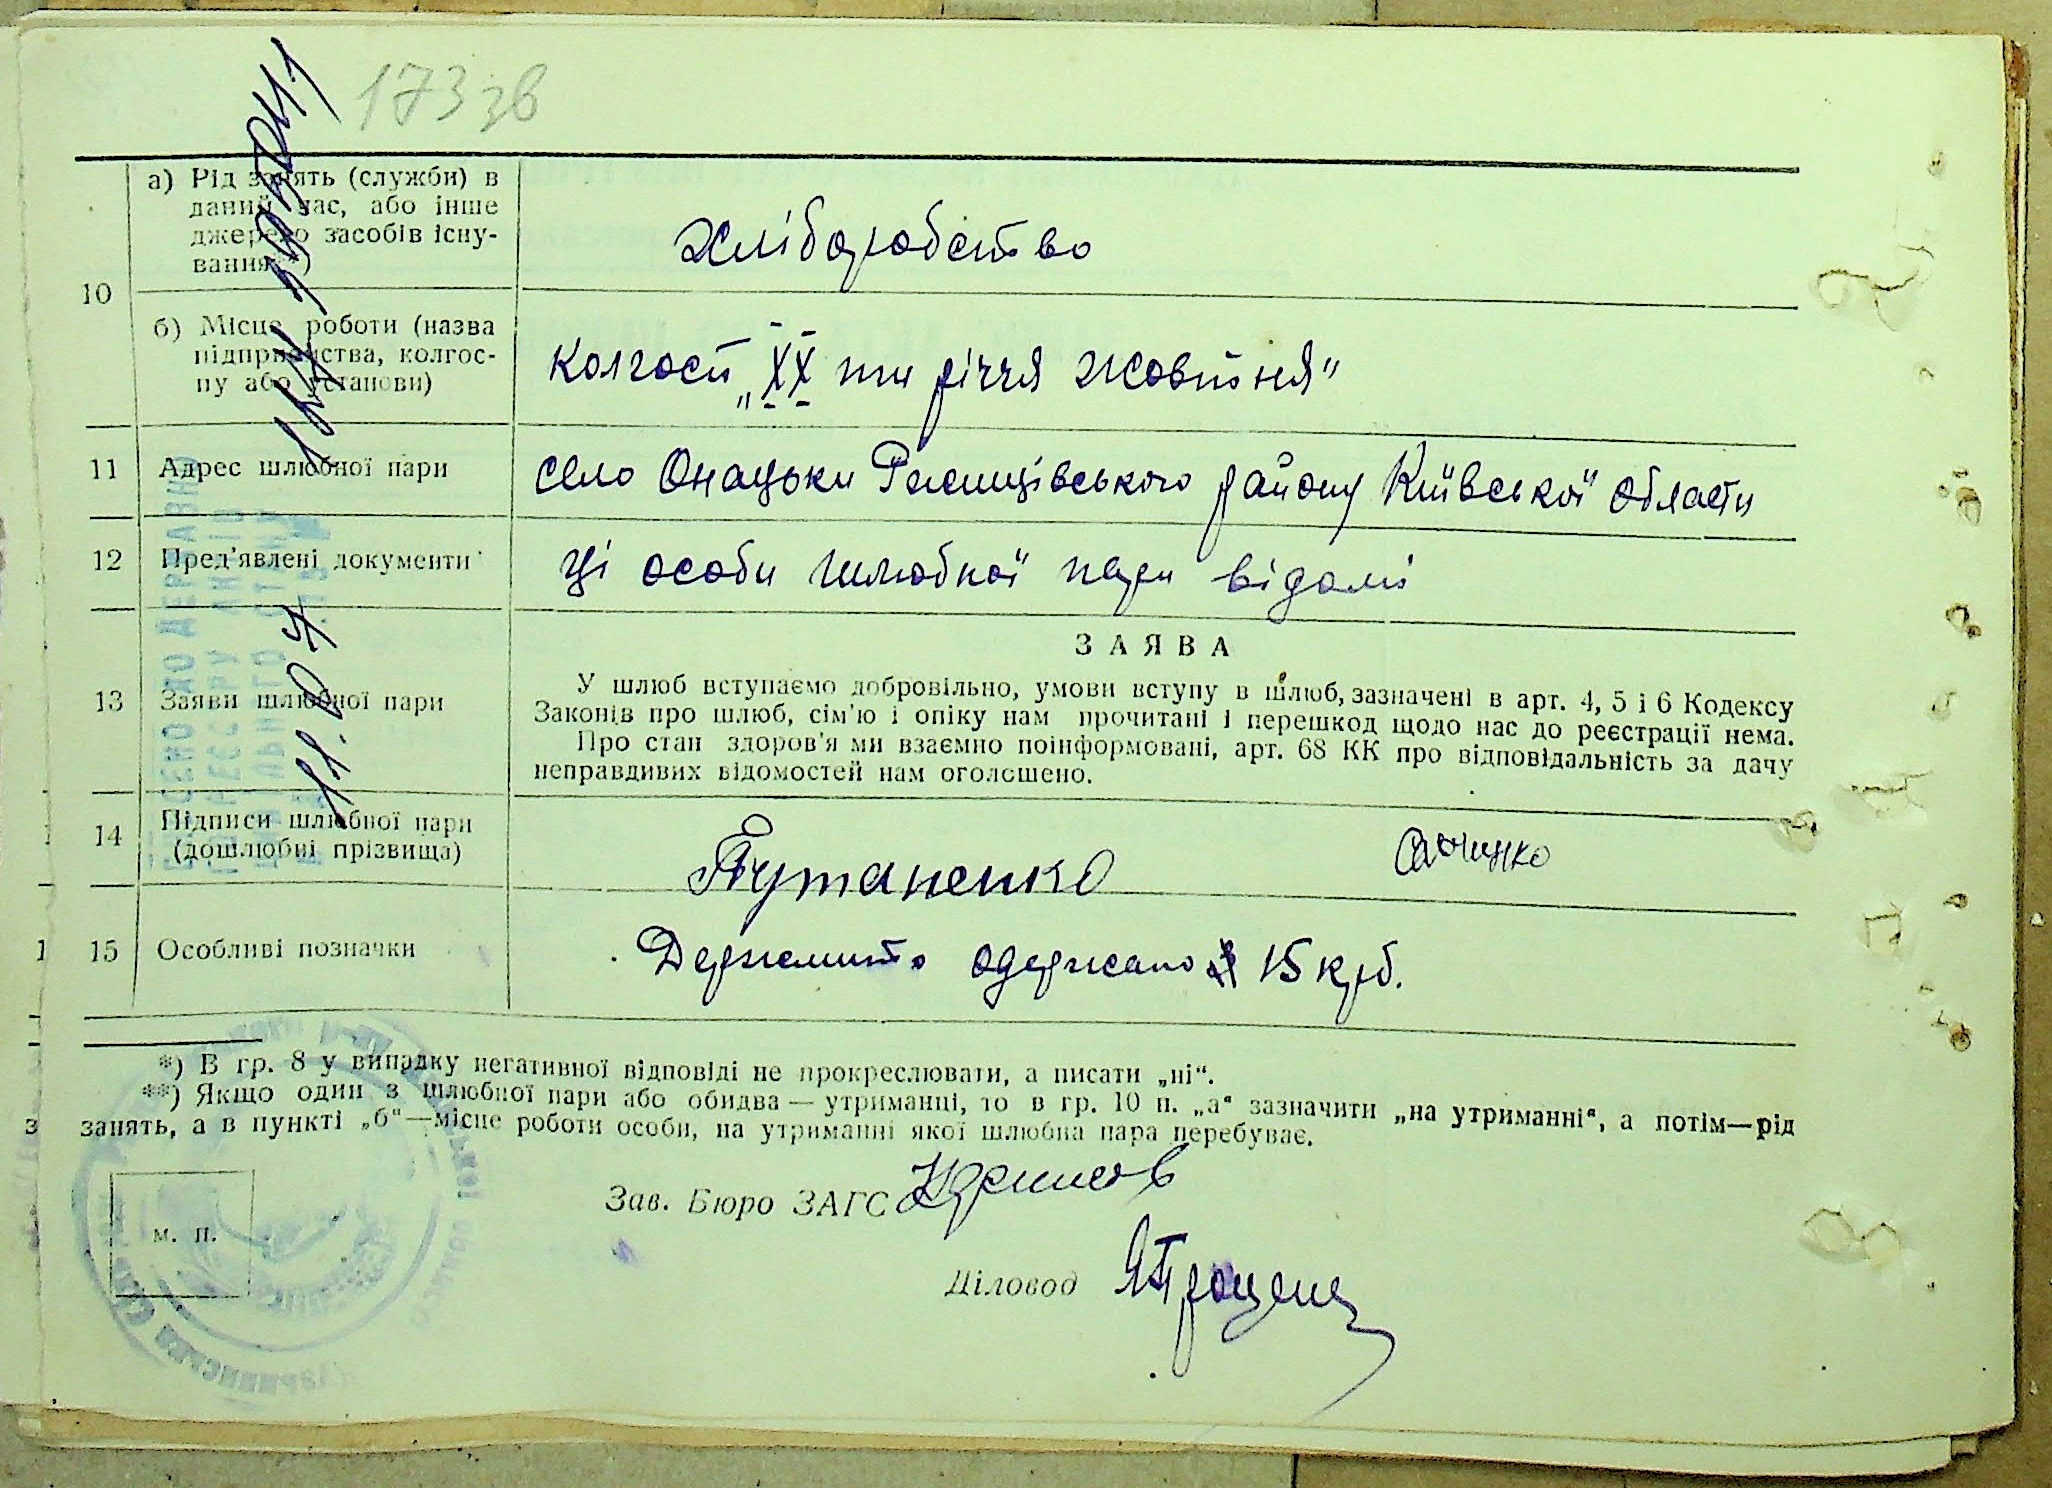 173 зв
10
а) Рід занять (служби) в
даний час, або інше
джерело засобів існу-
вання**)
хліборобство
б) Місце роботи (назва
підприємства, колгос-
пу або установи)
колгосп „XX ти річчя Жовтня"
11 Адрес шлюбної пари
село Онацьки Ржищівського району Київської області
12 Пред'явлені документи
Ці особи шлюбної пари відомі
ЗАЯВА
13 Заяви шлюбної пари
У шлюб вступаємо добровільно, умови вступу в шлюб, зазначені в арт. 4, 5 і 6 Кодексу
Законів про шлюб, сім'ю і опіку нам прочитані і перешкод щодо нас до реєстрації нема.
Про стан здоров'я ми взаємно поінформовані, арт. 68 КК про відповідальність за дачу
неправдивих відомостей нам оголошено.
14 Підписи шлюбної пари
(дошлюбні прізвища)
15 Особливі позначки
Держмито одержано 15 крб.
*) В гр. 8 у випадку негативної відповіді не прокреслювати, а писати „ні“.
**) Якщо один з шлюбної пари або обидва — утриманці, то в гр. 10 п. „а“ зазначити „на утриманні“, а потім—рід
занять, а в пункті „б“—місце роботи особи, на утриманні якої шлюбна пара перебуває.
Зав. Бюро ЗАГС
м. п.
Діловод